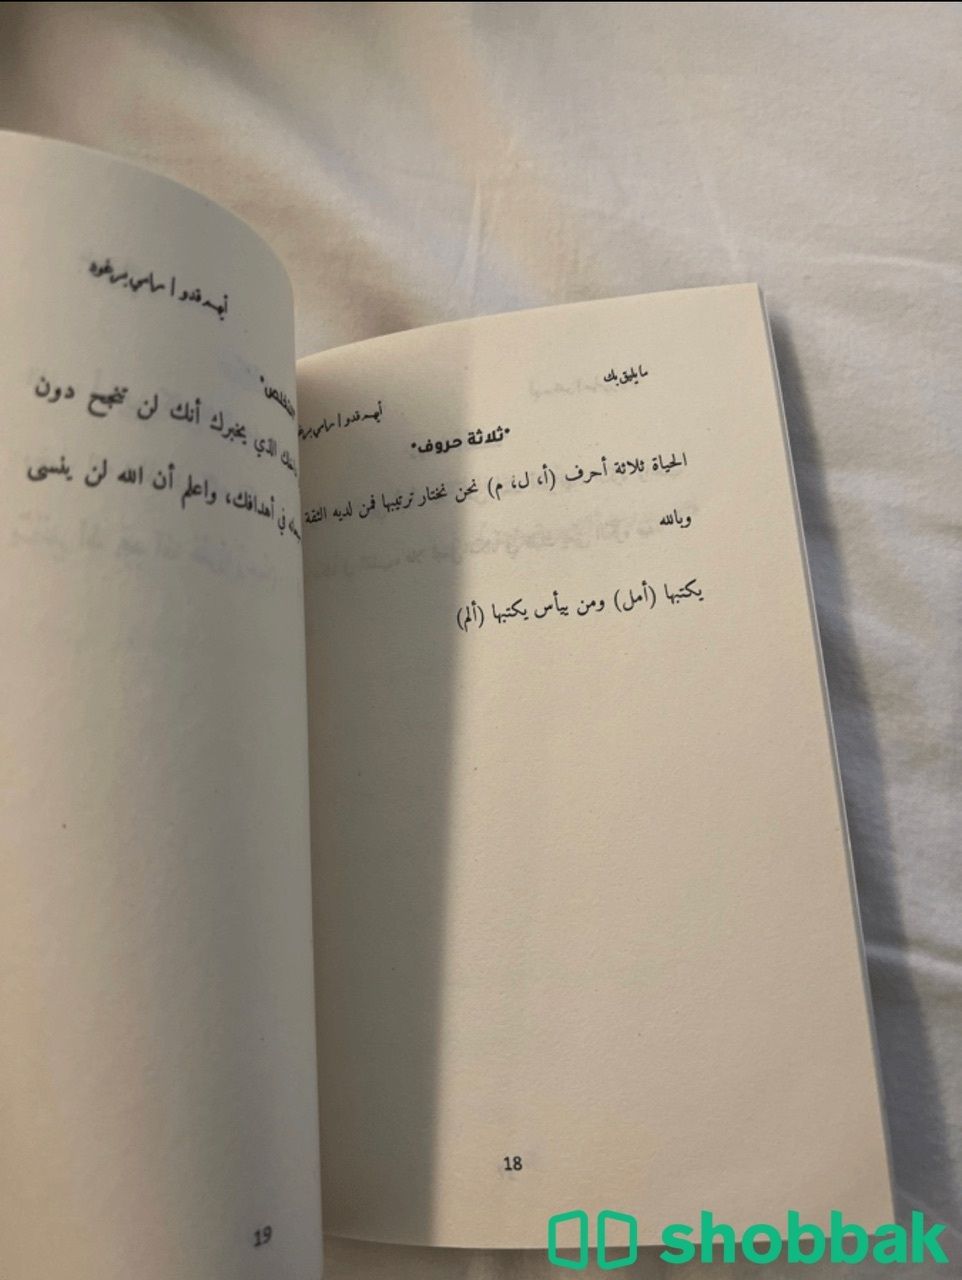 مايليق بك
أيهم قدو | رامي برغوه
*ثلاثة حروف*
الحياة ثلاثة أحرف (أ، ل، م) نحن نختار ترتيبها فمن لديه الثقة
وبالله
يكتبها (أمل) ومن ييأس يكتبها (ألم)
18
أيهم قدو | رامي برغوه
الذي يخبرك أنك لن تنجح دون
في أهدافك، واعلم أن الله لن ينسى
19
shobbak